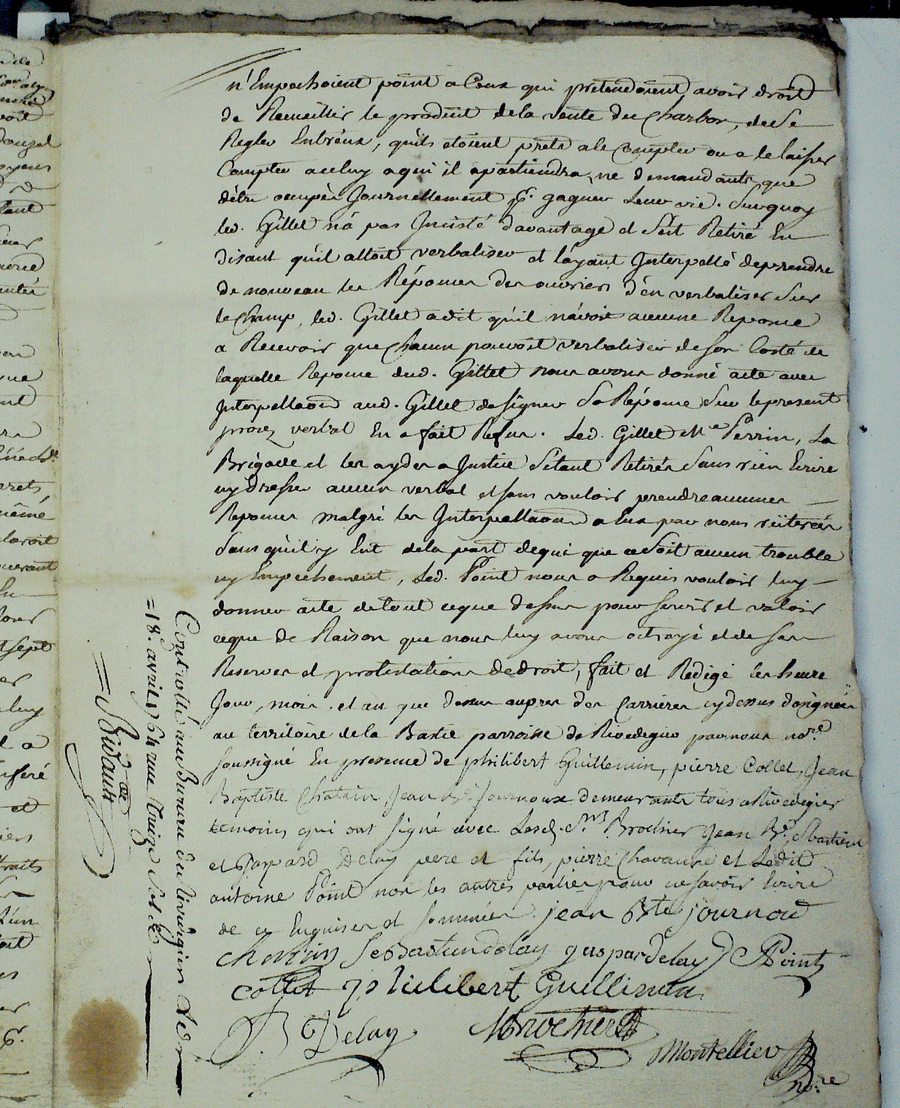 n'Empechoient point a Ceux qui prétendoient avoir droit
de Recueillir le produit de la vente du Charbon, de Se
Regler Entreux, quils etoient prets a le Compter ou a le laisser
Compter a celuy a qui il apartiendra, ne demandants que
dêtre occupés Journellement pr. gagner Leur vie. Surquoy
led. Gillet n'a pas Insisté davantage et s'est Retiré En
disant qu'il alloit verbaliser et layant Interpellé de prendre
de nouveau les Réponses des ouvriers d'en verbaliser Sur
le Champ, led. Gillet a dit qu'il n'avoit aucune Reponse
a Recevoir que Chacun pouvoit verbaliser de son Costé de
laquelle Reponse dud. Gillet nous avons donné acte avec
Interpellaon aud. Gillet de signer Sa Réponse Sur le present
procez verbal En a fait Refus. Led. Gillet Me Perrin, La
Brigade et les aydes a Justice S'etant Retirés Sans rien Ecrire
ny dresser aucun verbal et sans vouloir prendre aucunes
Reponses malgré les Interpellaons a Eux par nous réiterées
Sans qu'il y Eut de la part de qui que ce Soit aucun trouble
ny Empechement, Led. Point nous a Requis vouloir luy
donner acte de tout ce que dessus pour servir et valoir
ce que de Raison que nous luy avons octroyé et de ses
Reserves et protestations de droit, fait et Redigé les heure
Jour, mois et an que dessus aupres des Carrieres cy dessus designées
au territoire de la Bastie parroisse de Rivedegier par nous nore.
soussigné En presence de philibert Guillemin, pierre Collet, Jean
Baptiste Chatain, Jean Bte Journoux demeurants tous a Rivedegier
temoins qui ont signé avec Lesd. Srs Brochier Jean Bte, Sebastien
et Gaspard Delay pere et fils, pierre Chavanne et Ledit
antoine Point non les autres parties pour ne savoir Ecrire
de ce Enquises et sommées. jean Bte journoud
Sebastien delay gaspar Delay APoint
Collet philibert Guillimin
JB Delay Brochier
Montellier
nore
Controlé au Bureau de Rivedegier Le
18e avril 1754 Reçu Treize Sols